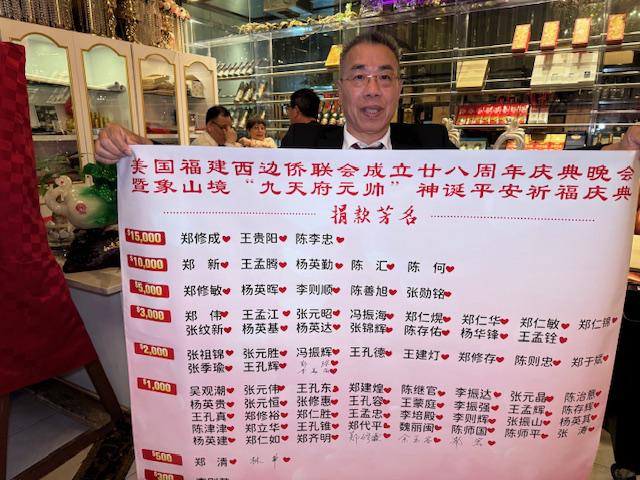 美国福建西边侨联会成立廿八周年庆典晚会
暨象山境“九天府元帅”神诞平安祈福庆典
捐款芳名
$15,000 郑修成 王贵阳 陈李忠
$10,000 郑新 王孟腾 杨英勤 陈汇 陈何
$5,000 郑修敏 杨英晖 李则顺 陈善旭 张勋铭
$3,000 郑伟 王孟江 张元昭 冯振海 郑仁焜 郑仁华 郑仁敏 郑仁锦
张纹新 杨英基 杨英达 张锦辉 陈存佑 杨华锋 王孟铨
$2,000 张祖锦 张元胜 冯振辉 王孔德 王建灯 郑修存 陈则忠 郑于斌
张季瑜 王孔辉
$1,000 吴观潮 张元伟 王孔东 郑建煌 陈继官 李振达 张元晶 陈治慧
杨英贵 张元恒 张修惠 王孔容 王蒙庭 李振强 王孟辉 陈存辉
王孔真 郑修裕 郑仁胜 王孟忠 李培殿 李则辉 张振山 杨英其
陈津津 郑立华 王孔锥 郑代平 魏丽闽 陈师国 陈师平 张涛
杨英建 郑仁如 郑齐明
$500 郑清 林华
$300